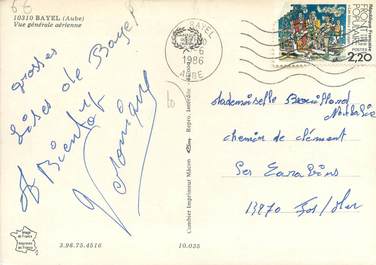 10310 BAYEL (Aube)
Vue générale aérienne
grosses
bises de Bayel
A Bientôt
Véronique
3.96.75.4516
10.035
Combier Imprimeur Mâcon
Repro. Interdite
BAYEL
6
1986
AUBE
République Française
FRONT POPULAIRE
POSTES
2,20
Mademoiselle
chemin de clément
Les
13270 Fos/Mer